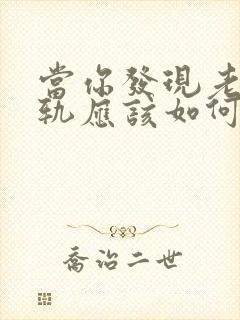 當你發現老
軌應該如何
喬治二世